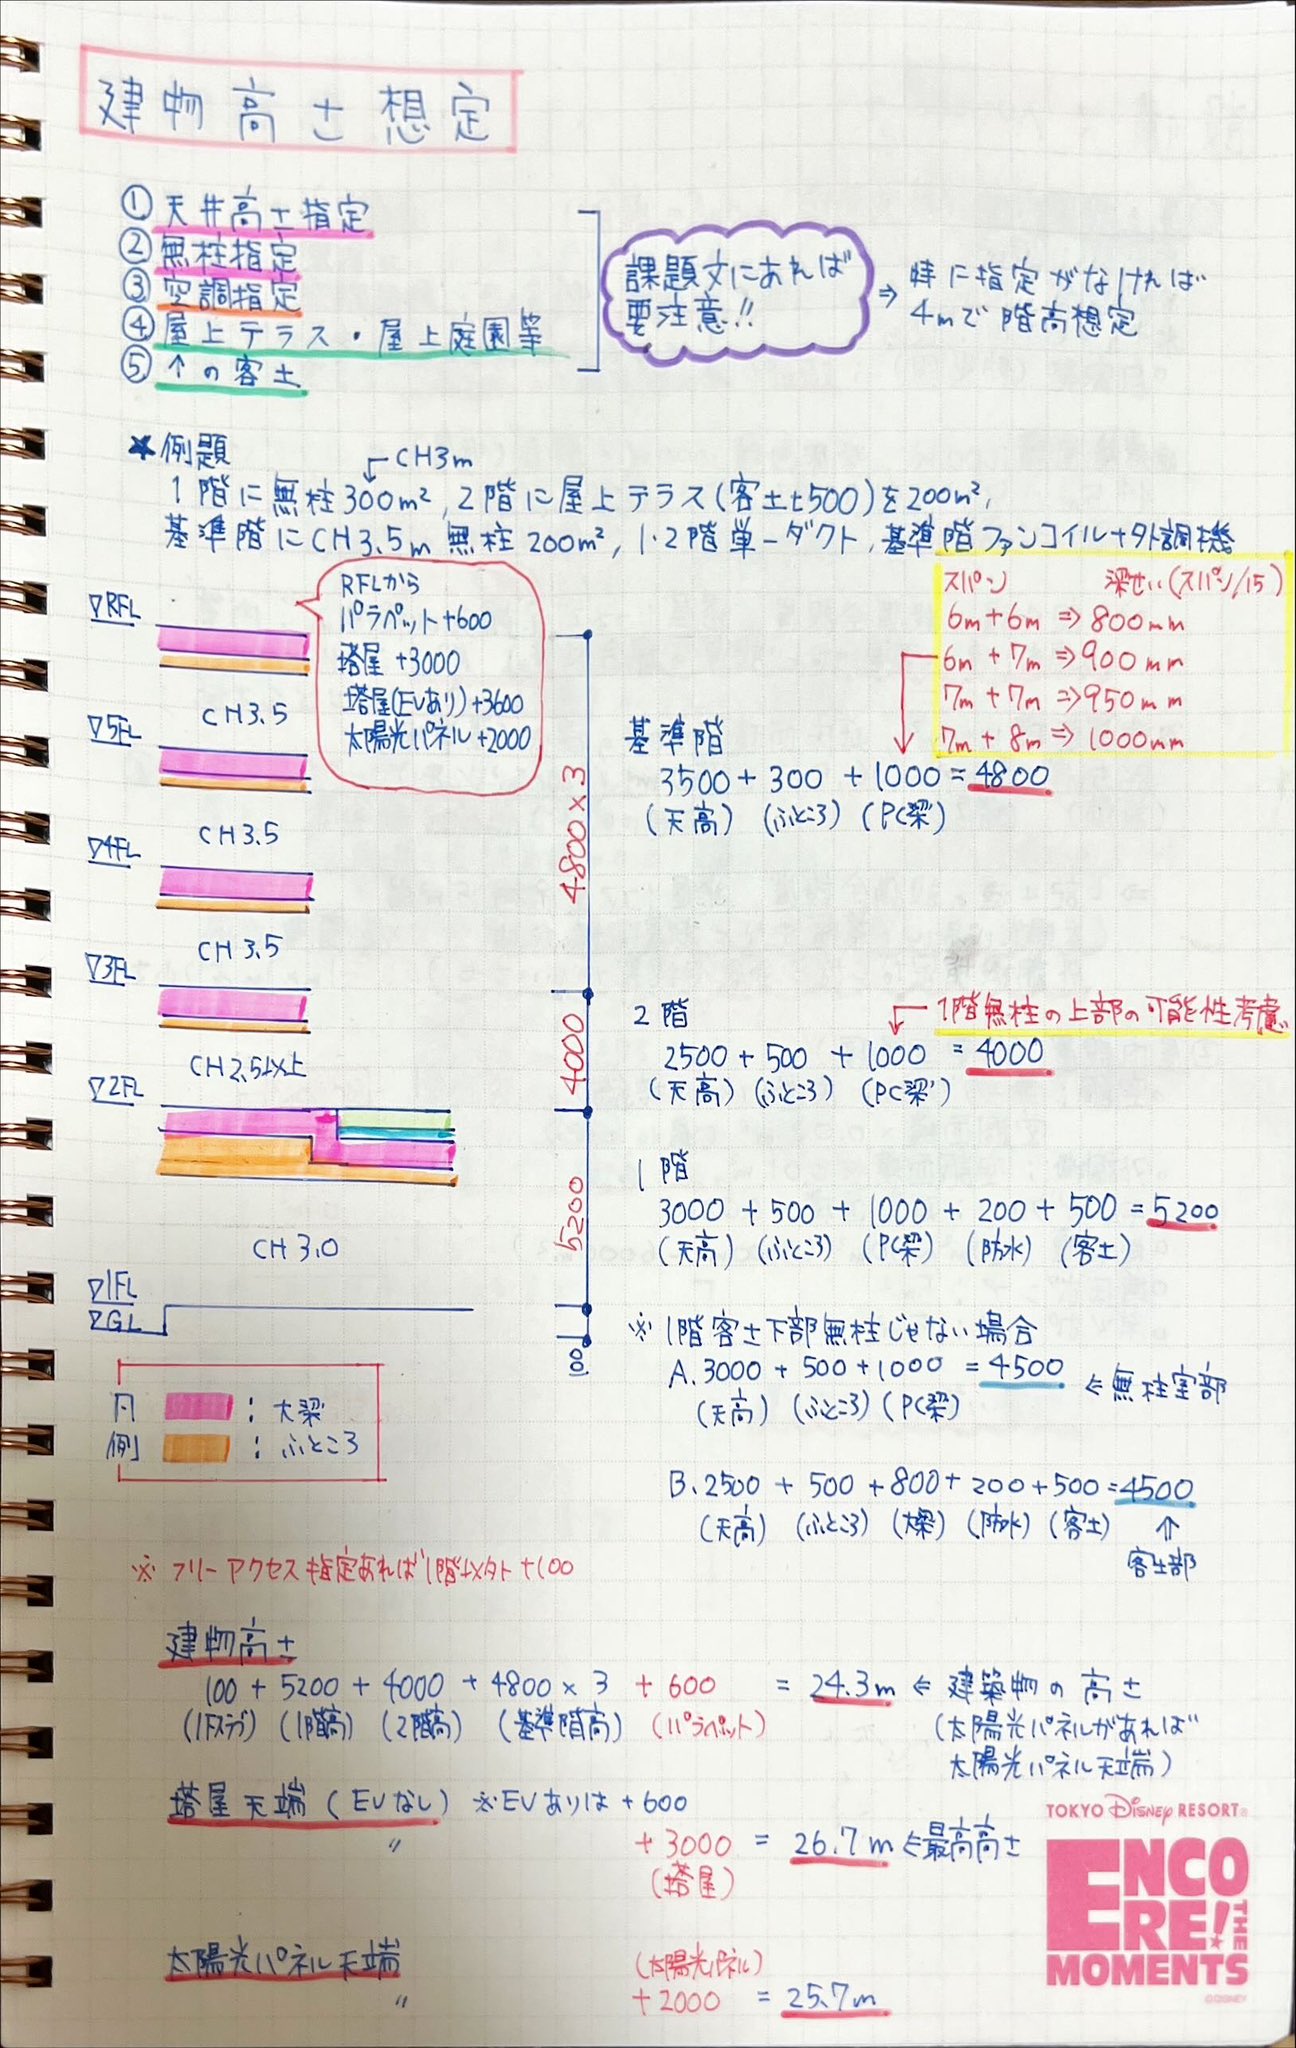 建物高さ想定
① 天井高さ指定
② 無柱指定
③ 空調指定
④ 屋上テラス・屋上庭園等
⑤ ↑の客土
課題文にあれば
要注意!!
⇒ 特に指定がなければ
4mで階高想定
★例題
CH3m
1階に無柱300m²,2階に屋上テラス(客土t500)を200m²,
基準階にCH3.5m 無柱200m²,1・2階単一ダクト,基準階ファンコイル+外調機
▽RFL
CH3.5
▽5FL
CH3.5
▽4FL
CH3.5
▽3FL
CH2.5以上
▽2FL
CH3.0
▽1FL
▽GL
RFLから
パラペット+600
塔屋 +3000
塔屋(EVあり)+3600
太陽光パネル +2000
4800×3
4000
5200
100
スパン 深せい(スパン/15)
6m+6m ⇒ 800mm
6m+7m ⇒ 900mm
7m+7m ⇒ 950mm
7m+8m ⇒ 1000mm
基準階
3500 + 300 + 1000 = 4800
(天高) (ふところ) (PC梁)
2階
1階無柱の上部の可能性考慮
2500 + 500 + 1000 = 4000
(天高) (ふところ) (PC梁)
1階
3000 + 500 + 1000 + 200 + 500 = 5200
(天高) (ふところ) (PC梁) (防水) (客土)
※1階客土下部無柱じゃない場合
A. 3000 + 500 + 1000 = 4500 ⇐ 無柱室部
(天高) (ふところ) (PC梁)
B. 2500 + 500 + 800 + 200 + 500 = 4500
(天高) (ふところ) (大梁) (防水) (客土) ↑
客土部
凡例
: 大梁
: ふところ
※ フリーアクセス指定あれば1階以外+100
建物高さ
100 + 5200 + 4000 + 4800 × 3 + 600 = 24.3m ⇐ 建築物の高さ
(1Fスラブ) (1階高) (2階高) (基準階高) (パラペット) (太陽光パネルがあれば
太陽光パネル天端)
塔屋天端(EVなし) ※EVありは+600
〃 +3000 = 26.7m ⇐ 最高高さ
(塔屋)
太陽光パネル天端 (太陽光パネル)
〃 +2000 = 25.7m
TOKYO Disney RESORT®
ENCORE!
THE
MOMENTS
©DISNEY